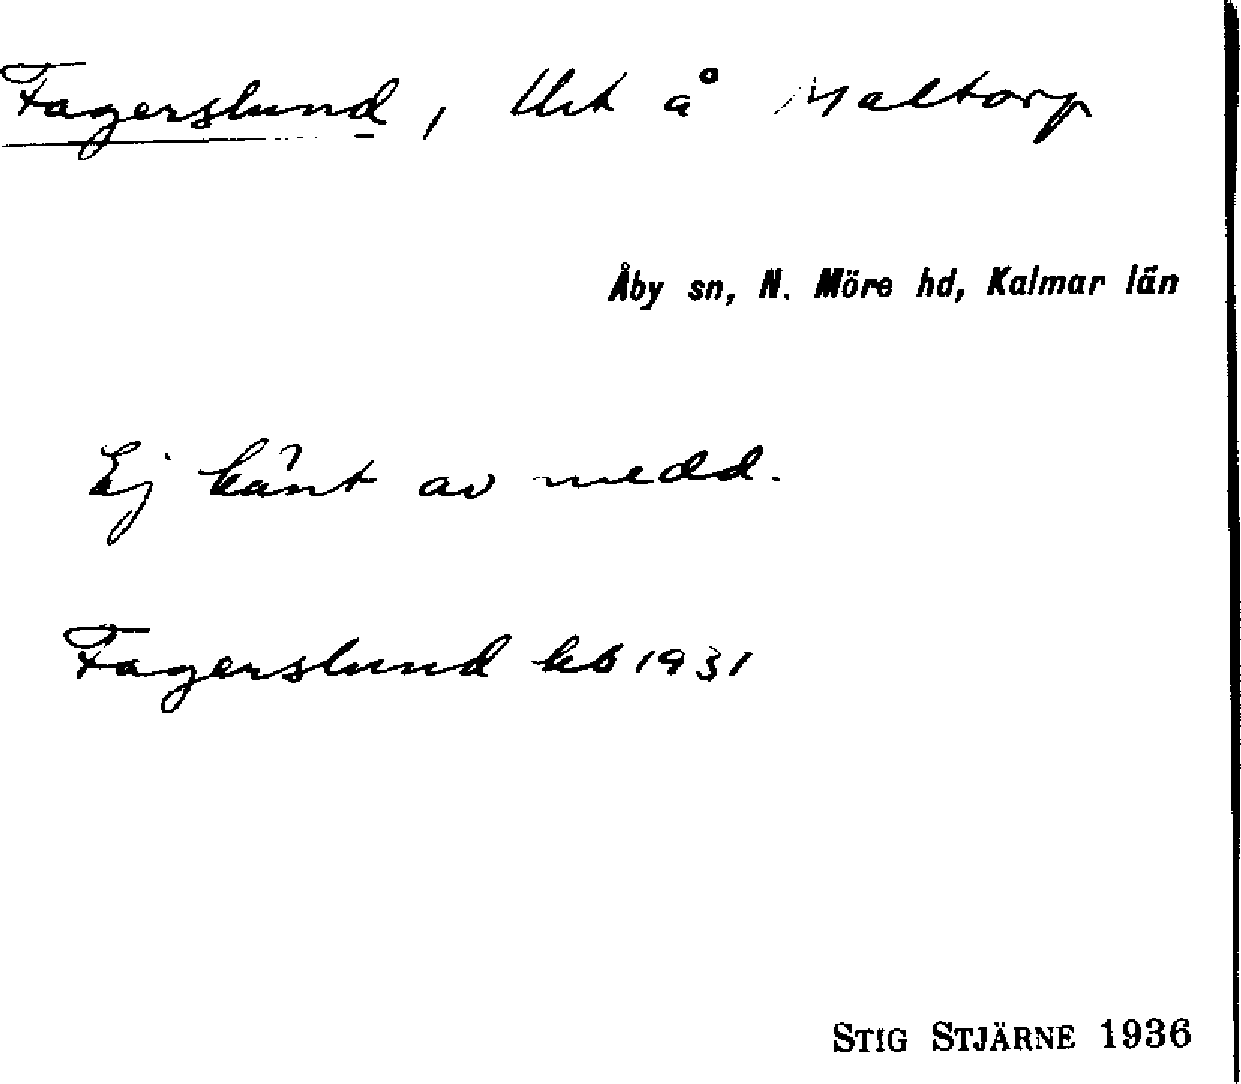 Fagerslund, Uht å Maltorp
Åby sn, N. Möre hd, Kalmar län
Ej känt av medd.
Fagerslund kb 1931
STIG STJÄRNE 1936